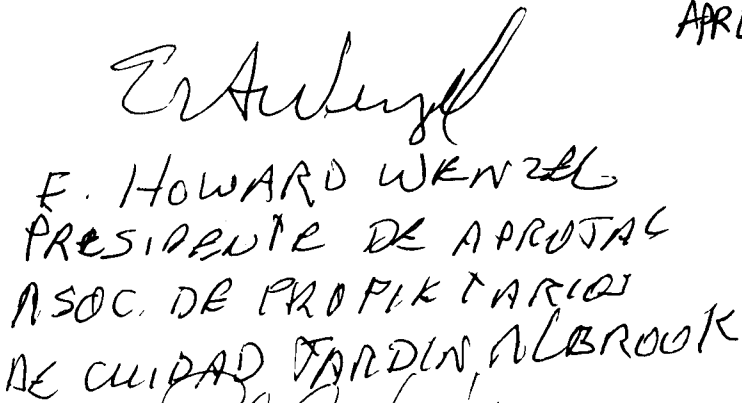 APRI
E. HOWARD WENZEL
PRESIDENTE DE APROJAL
ASOC. DE PROPIETARIOS
DE CUIDAD JARDIN, ALBROOK